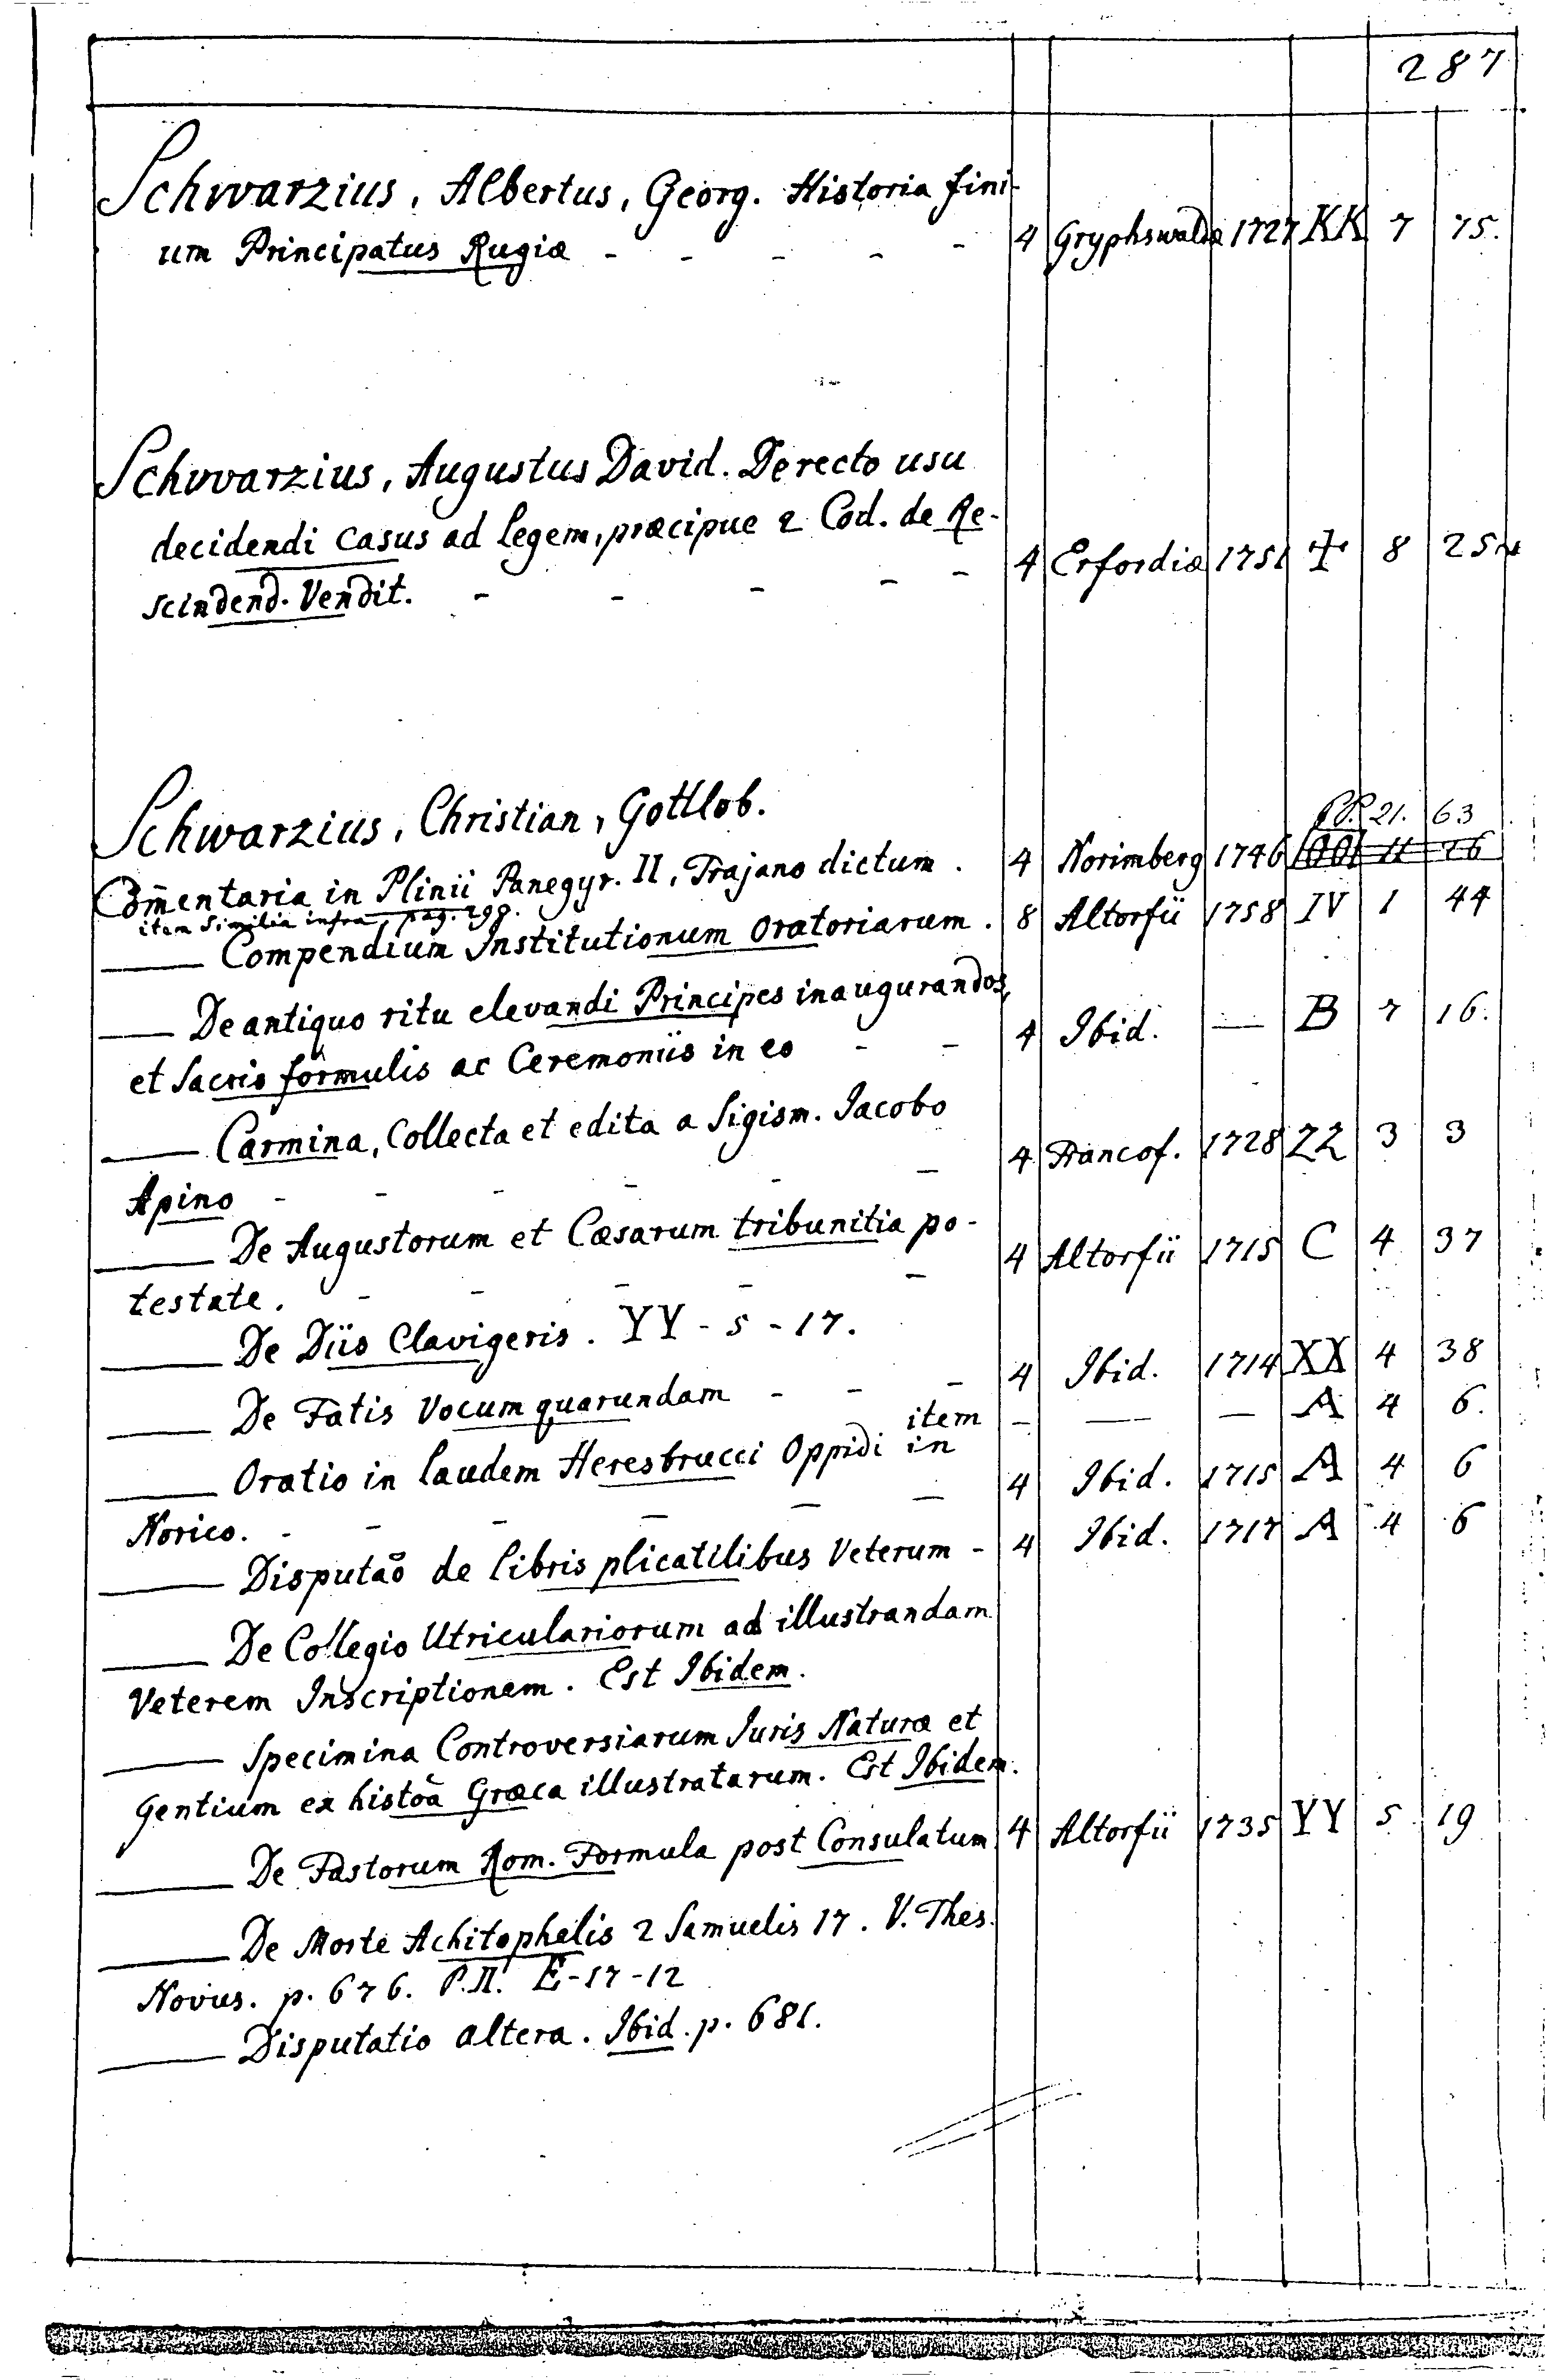 287
Schwarzius, Albertus, Georg. Historia fini-
um Principatus Rugiæ - - - - - 4 Gryphswaldæ 1727 KK 7 75.
Schwarzius, Augustus David. De recto usu
decidendi Casus ad legem, præcipue 2 Cod. de Re-
scindend. Vendit. - - - - - 4 Erfordiæ 1751 ☩ 8 25
Schwarzius, Christian, Gottlob.
PP. 21. 63
Com̄entaria in Plinii Panegyr. II, Trajano dictum. 4 Norimberg 1746 OO 11 16
item Similia infra, pag. 299.
—— Compendium Institutionum Oratoriarum. 8 Altorfii 1758 IV 1 44
—— De antiquo ritu elevandi Principes inaugurandos,
et Sacris formulis ac Ceremoniis in eo - - 4 Ibid. — B 7 16.
—— Carmina, Collecta et edita a Sigism. Jacobo
Apino - - - - - - 4 Francof. 1728 ZZ 3 3
—— De Augustorum et Cæsarum tribunitia po-
testate. - - - - - 4 Altorfii 1715 C 4 37
—— De Diis Clavigeris. YY - 5 - 17.
—— De Fatis Vocum quarundam - - - 4 Ibid. 1714 XX 4 38
item — — — A 4 6.
—— Oratio in laudem Heresbrucci Oppidi in
Norico. - - - - - - 4 Ibid. 1715 A 4 6
—— Disputaõ de libris plicatilibus Veterum - 4 Ibid. 1717 A 4 6
—— De Collegio Utriculariorum ad illustrandam
Veterem Inscriptionem. Est Ibidem.
—— Specimina Controversiarum Juris Naturæ et
Gentium ex histoã Græca illustratarum. Est Ibidem.
—— De Fastorum Rom. Formula post Consulatum 4 Altorfii 1735 YY 5 19
—— De Morte Achitophelis 2 Samuelis 17. V. Thes.
Novus. p. 676. P.II. E-17-12
—— Disputatio altera. Ibid. p. 681.